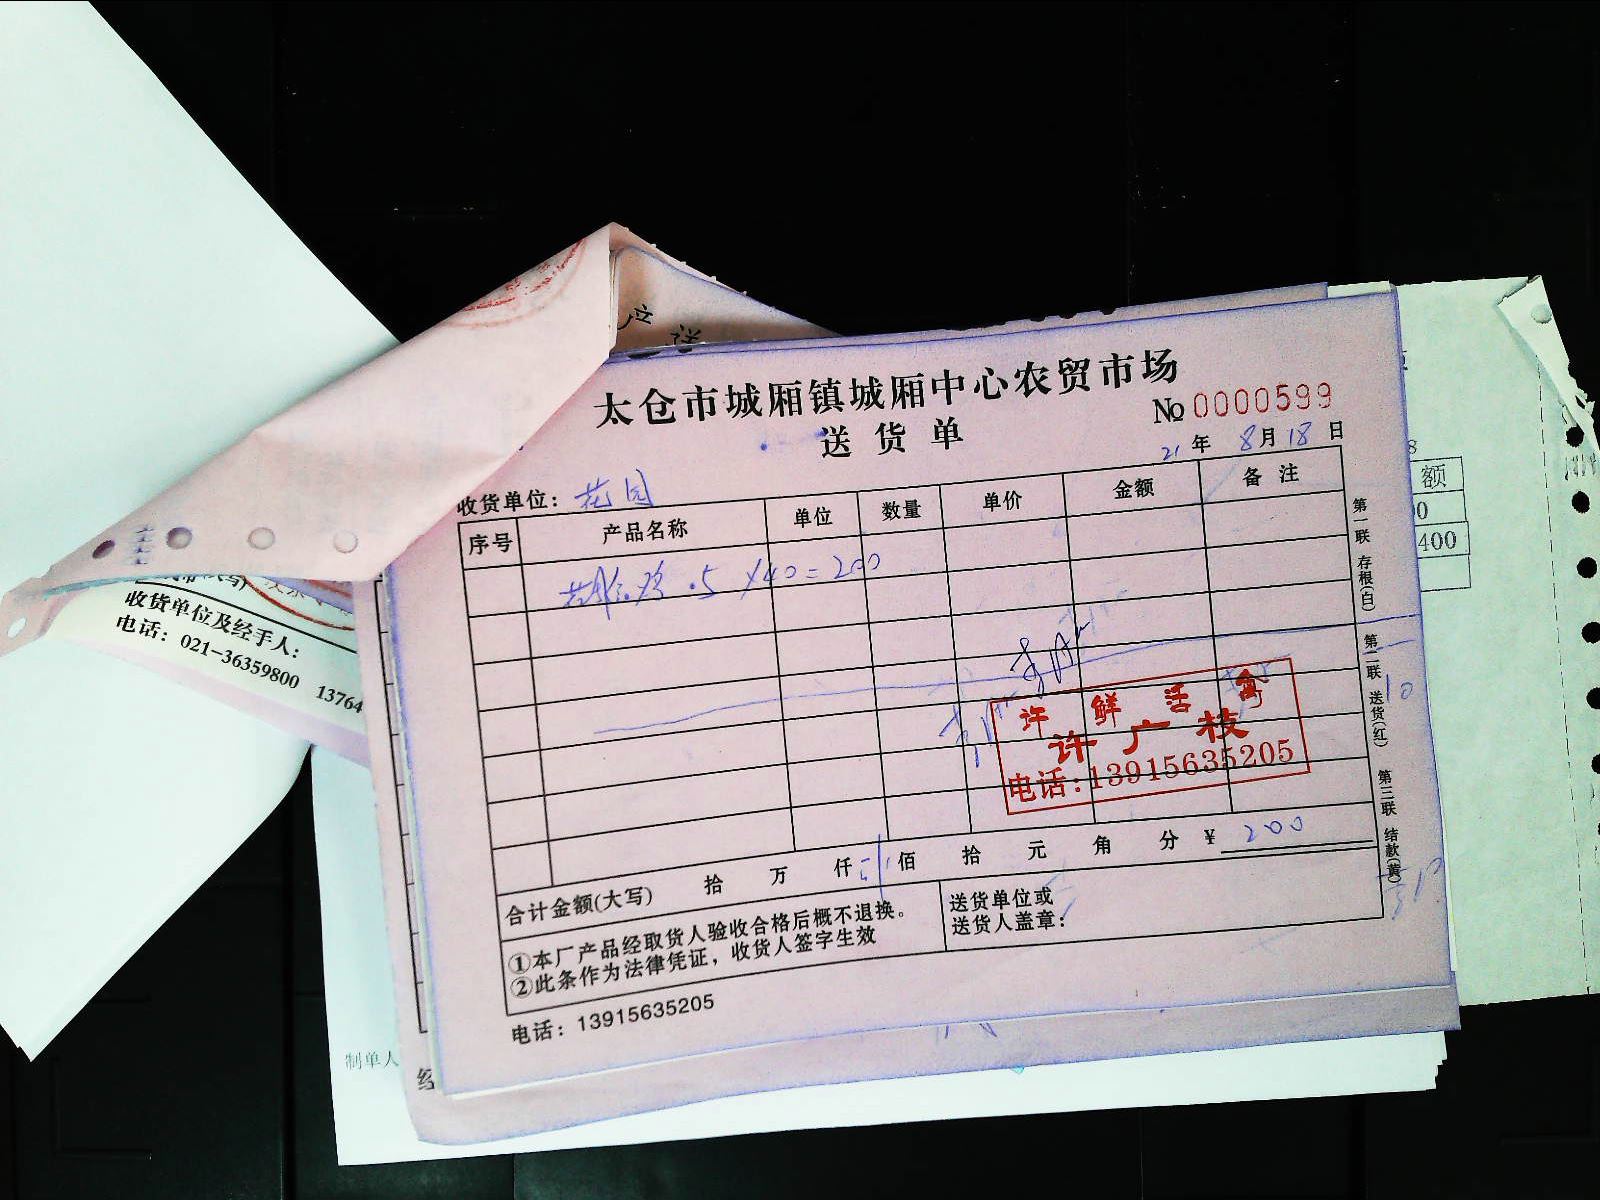 太仓市城厢镇城厢中心农贸市场
送货单
No 0000599
21年 8月18日
收货单位：花园
序号 产品名称 单位 数量 单价 金额 备注
.5 ×40=200
许鲜活禽
许广枝
电话：13915635205
合计金额(大写) 拾 万 仟 佰 拾 元 角 分 ¥ 200
①本厂产品经取货人验收合格后概不退换。
②此条作为法律凭证，收货人签字生效
送货单位或
送货人盖章：
电话：13915635205
第一联 存根(白) 第二联 送货(红) 第三联 结款(黄)
收货单位及经手人：
电话：021-36359800 13764
制单人
额
00
400